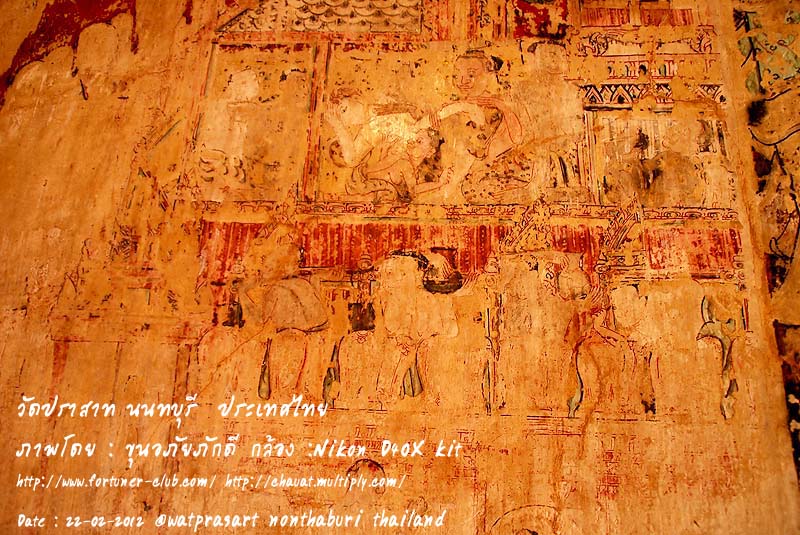 วัดปราสาท นนทบุรี ประเทศไทย
ภาพโดย : ขุนอภัยภักดี กล้อง :Nikon D40X kit
http://www.fortuner-club.com/ http://chauat.multiply.com/
Date : 22-02-2012 @watprasart nonthaburi thailand